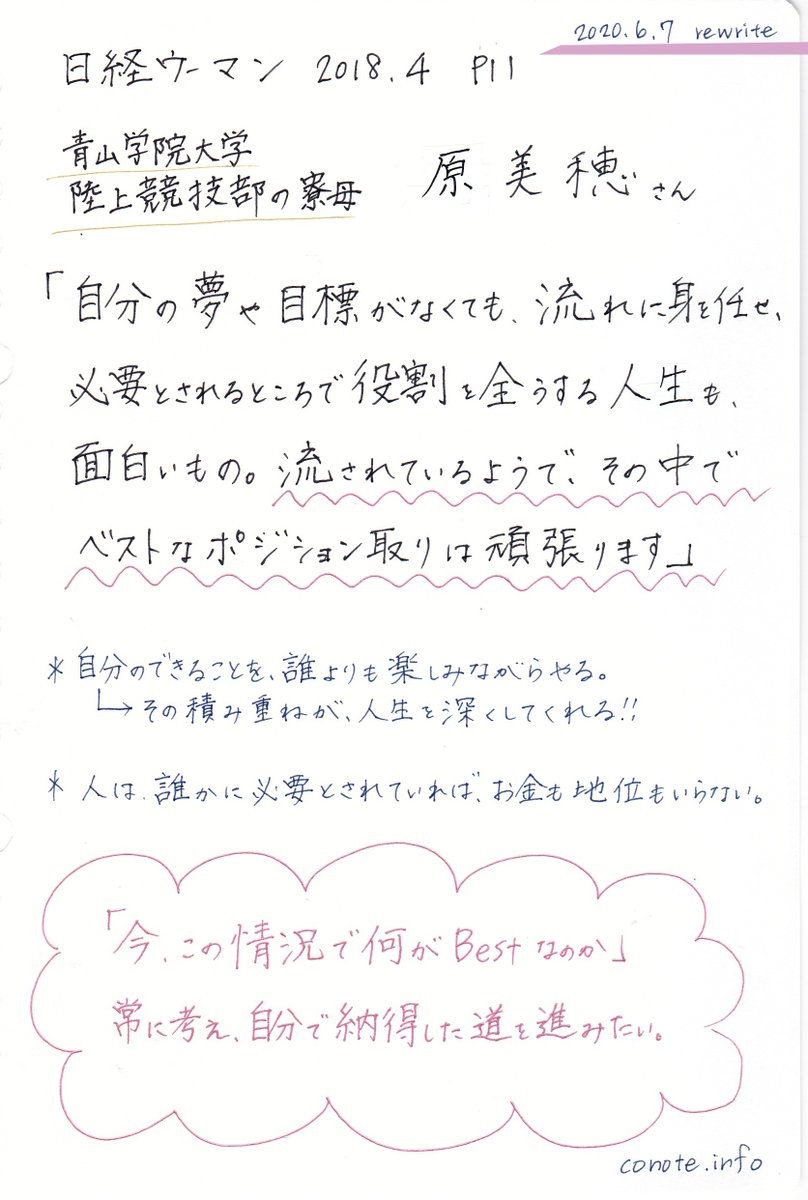 2020.6.7 rewrite
日経ウーマン 2018.4 P11
青山学院大学
陸上競技部の寮母 原美穂さん
「自分の夢や目標がなくても、流れに身を任せ、
必要とされるところで役割を全うする人生も、
面白いもの。流されているようで、その中で
ベストなポジション取りは頑張ります」
*自分のできることを、誰よりも楽しみながらやる。
→その積み重ねが、人生を深くしてくれる!!
*人は、誰かに必要とされていれば、お金も地位もいらない。
「今、この情況で何がBestなのか」
常に考え、自分で納得した道を進みたい。
conote.info